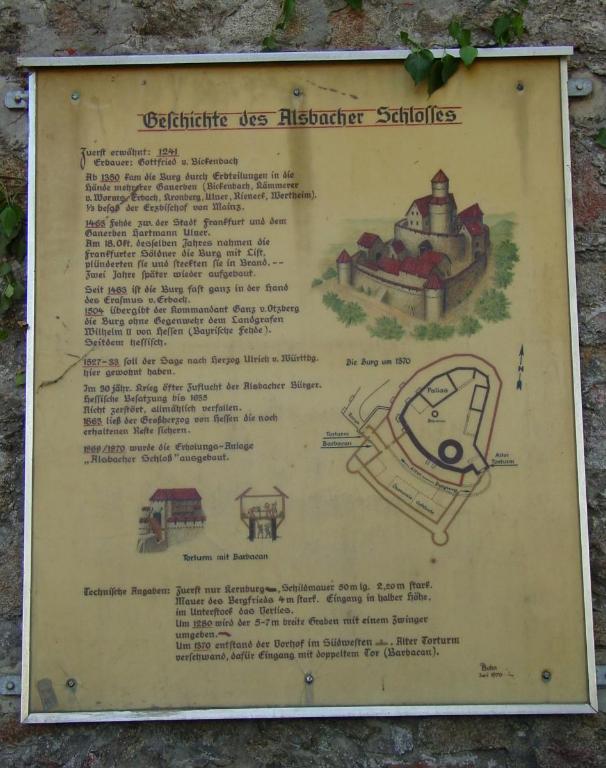 Geschichte des Alsbacher Schlosses
Zuerst erwähnt: 1241
Erbauer: Gottfried v. Bickenbach
Ab 1350 kam die Burg durch Erbteilungen in die
Hände mehrerer Ganerben (Bickenbach, Kämmerer
v. Worms, Erbach, Kronberg, Ulner, Rieneck, Wertheim).
⅓ besaß der Erzbischof von Mainz.
1463 Fehde zw. der Stadt Frankfurt und dem
Ganerben Hartmann Ulner.
Am 18. Okt. desselben Jahres nahmen die
Frankfurter Söldner die Burg mit List,
plünderten sie und steckten sie in Brand. --
Zwei Jahre später wieder aufgebaut.
Seit 1483 ist die Burg fast ganz in der Hand
des Erasmus v. Erbach.
1504 übergibt der Kommandant Ganz v. Otzberg
die Burg ohne Gegenwehr dem Landgrafen
Wilhelm II von Hessen (Bayrische Fehde).
Seitdem hessisch.
1527-33 soll der Sage nach Herzog Ulrich v. Württbg.
hier gewohnt haben.
Im 30 jähr. Krieg öfter Zuflucht der Alsbacher Bürger.
Hessische Besatzung bis 1655
Nicht zerstört, allmählich verfallen.
1863 ließ der Großherzog von Hessen die noch
erhaltenen Reste sichern.
1969/1970 wurde die Erholungs-Anlage
„Alsbacher Schloß" ausgebaut.
Die Burg um 1370
Palas
Brunnen
Torturm
Barbacan
Alter
Torturm
Torturm mit Barbacan
Technische Angaben: Zuerst nur Kernburg, Schildmauer 50 m lg. 2,20 m stark.
Mauer des Bergfrieds 4 m stark. Eingang in halber Höhe,
im Unterstock das Verlies.
Um 1280 wird der 5-7 m breite Graben mit einem Zwinger
umgeben.
Um 1370 entstand der Vorhof im Südwesten. Alter Torturm
verschwand, dafür Eingang mit doppeltem Tor (Barbacan).
1970